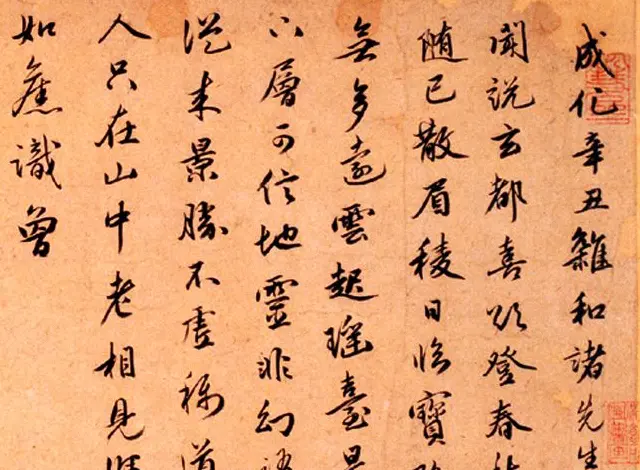 成化辛丑雜和諸先生
聞說玄都喜欲登春
隨已散眉稜日臨寶
無多遠雲起瑤臺是
層可信地靈非幻
從來景勝不虛稱道
人只在山中老相見
如舊識曾